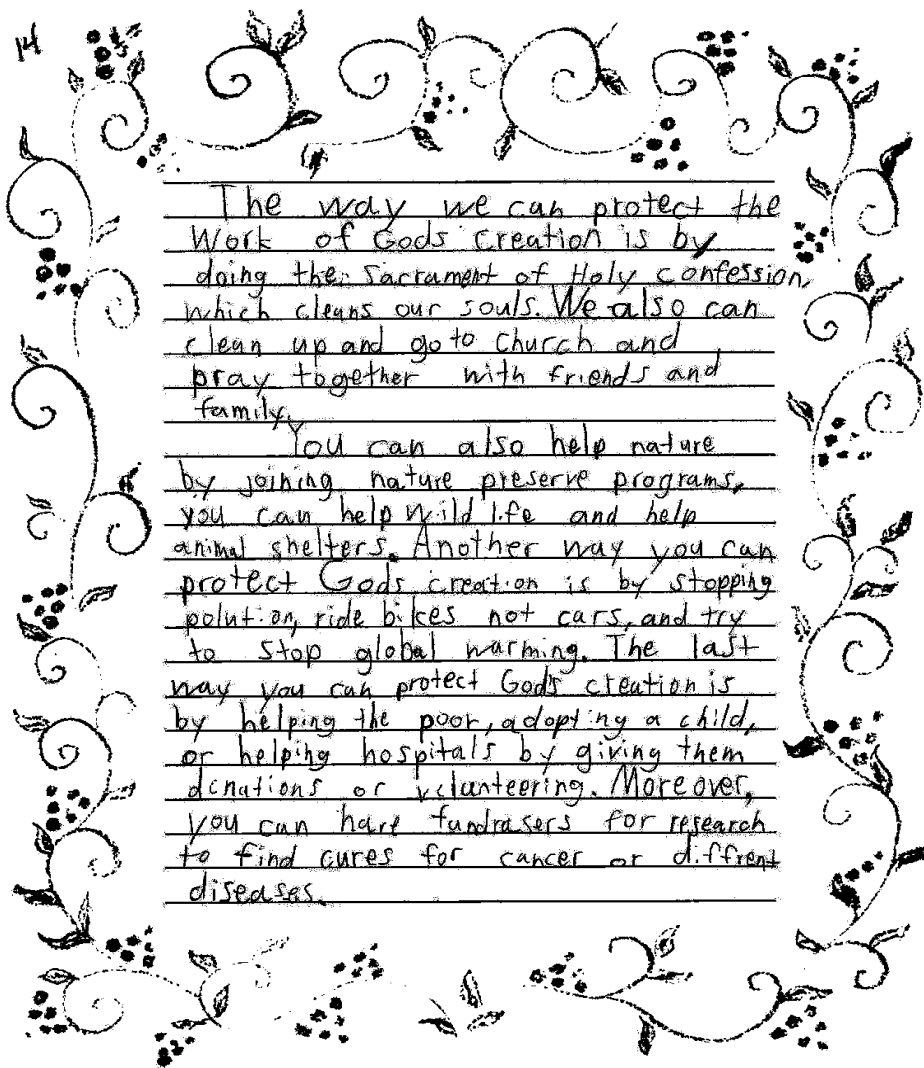 14
The way we can protect the
Work of Gods creation is by
doing the Sacrament of Holy confession,
which cleans our souls. We also can
clean up and go to Church and
pray together with friends and
family.
You can also help nature
by joining nature preserve programs,
you can help wild life and help
animal shelters. Another way you can
protect Gods creation is by stopping
polution, ride bikes not cars, and try
to stop global warming. The last
way you can protect God's creation is
by helping the poor, adopting a child,
or helping hospitals by giving them
donations or volunteering. Moreover,
you can have fundrasers for research
to find cures for cancer or diffrent
diseases.